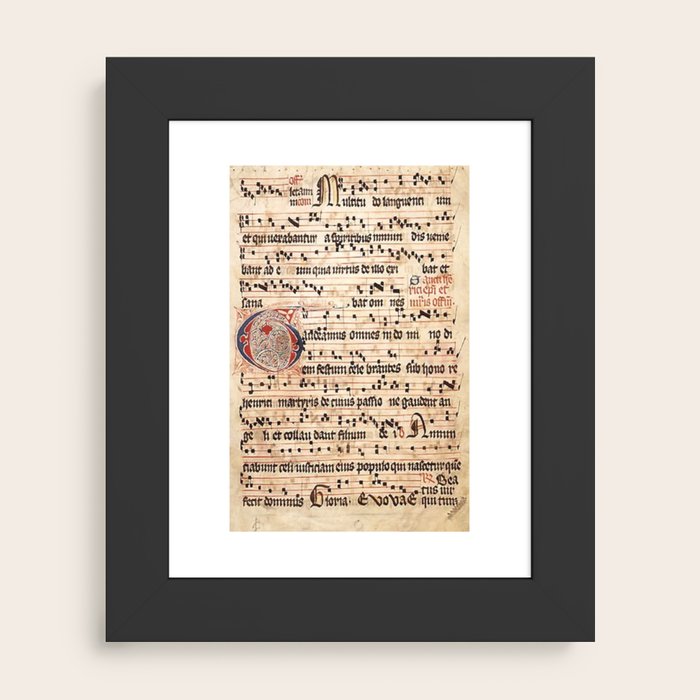 off
M ultitu do languenti um
et qui vexabantur a spiritibus inmun dis venie
bant ad e um quia virtus de illo exi bat et
sana bat om nes
S ancti he
rici epi et
m̄ris offm̄.
G audeamus omnes in do mi no di
em festum cele brantes sub hono re
henrici martyris de cuius passio ne gaudent an
ge li et collau dant filium de i A nnun
ciabunt celi iusticiam eius populo qui nascetur que
fecit dominus Gloria. EVOVAE
Bea
tus vir
qui tim